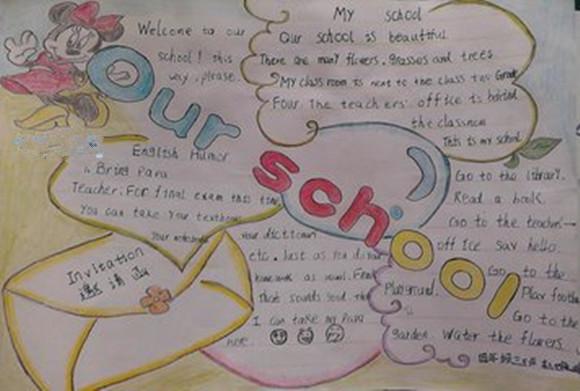 Welcome to our
school! this
way, please.
Our school
My school
Our school is beautiful.
There are many flowers, grasses and trees
My class room is next to the class
Grade
Four the teachers' office is behind
the classroom
This is my school
English Humor
Bring Papa
Teacher: For final exam this time
You can take your textbook
your notebook your dictionary
etc. Just as you do
homework as usual.
that sounds good.
I can take my Papa
here.
Invitation
邀请函
Go to the library.
Read a book.
Go to the teachers'
office say hello.
Go to the
Playground. Play foot
Go to the
garden. Water the flowers.